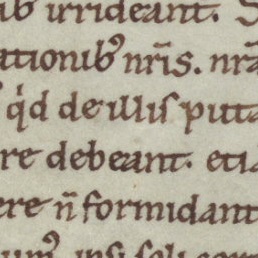 ib irrideant. S
ationibꝰ nr̄is. nrā
qͥd de illis puta
re debeant. etia
ere n̄ formidant